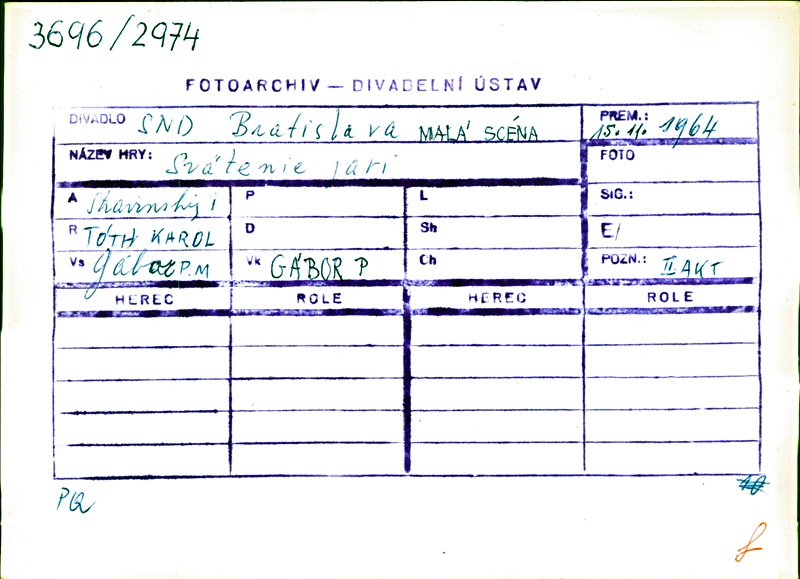 3696/2974
FOTOARCHIV — DIVADELNÍ ÚSTAV
DIVADLO SND Bratislava MALÁ SCÉNA
PREM.: 15. 11. 1964
NÁZEV HRY: Svätenie jari
FOTO
A Stravinskij I P L SIG.:
R TÓTH KAROL D Sh E/
Vs Gábor P.M Vk GÁBOR P Ch POZN.: II AKT
HEREC ROLE HEREC ROLE
PQ